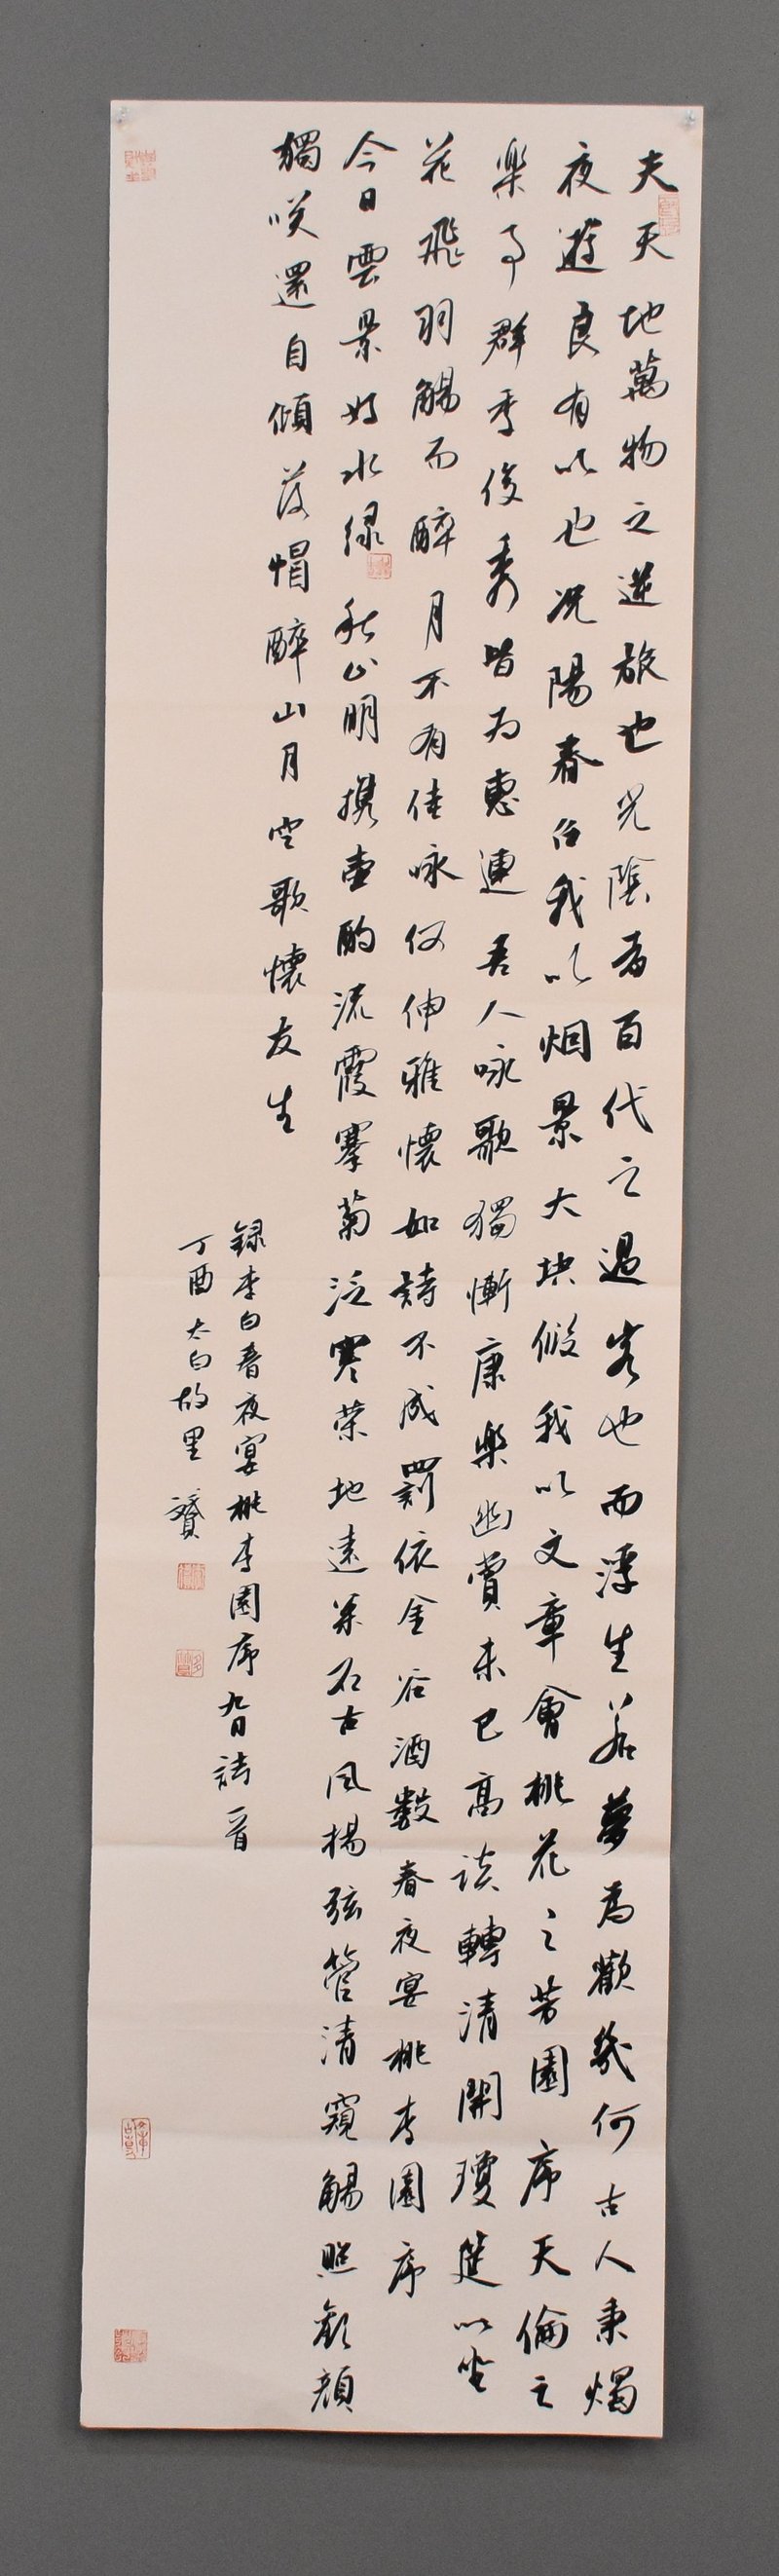 夫天地萬物之逆旅也光陰者百代之過客也而浮生若夢為歡幾何古人秉燭
夜遊良有以也况陽春召我以烟景大块假我以文章會桃花之芳園序天倫之
樂事群季俊秀皆为惠連吾人咏歌獨慚康樂幽賞未已高談轉清開瓊筵以坐
花飛羽觴而醉月不有佳咏何伸雅懷如詩不成罰依金谷酒數春夜宴桃李園序
今日雲景好水绿秋山明携壺酌流霞搴菊泛寒荣地遠松石古風揚弦管清窺觴照歡顔
獨咲還自傾落帽醉山月空歌懷友生
録李白春夜宴桃李園序九日詩一首
丁酉太白故里